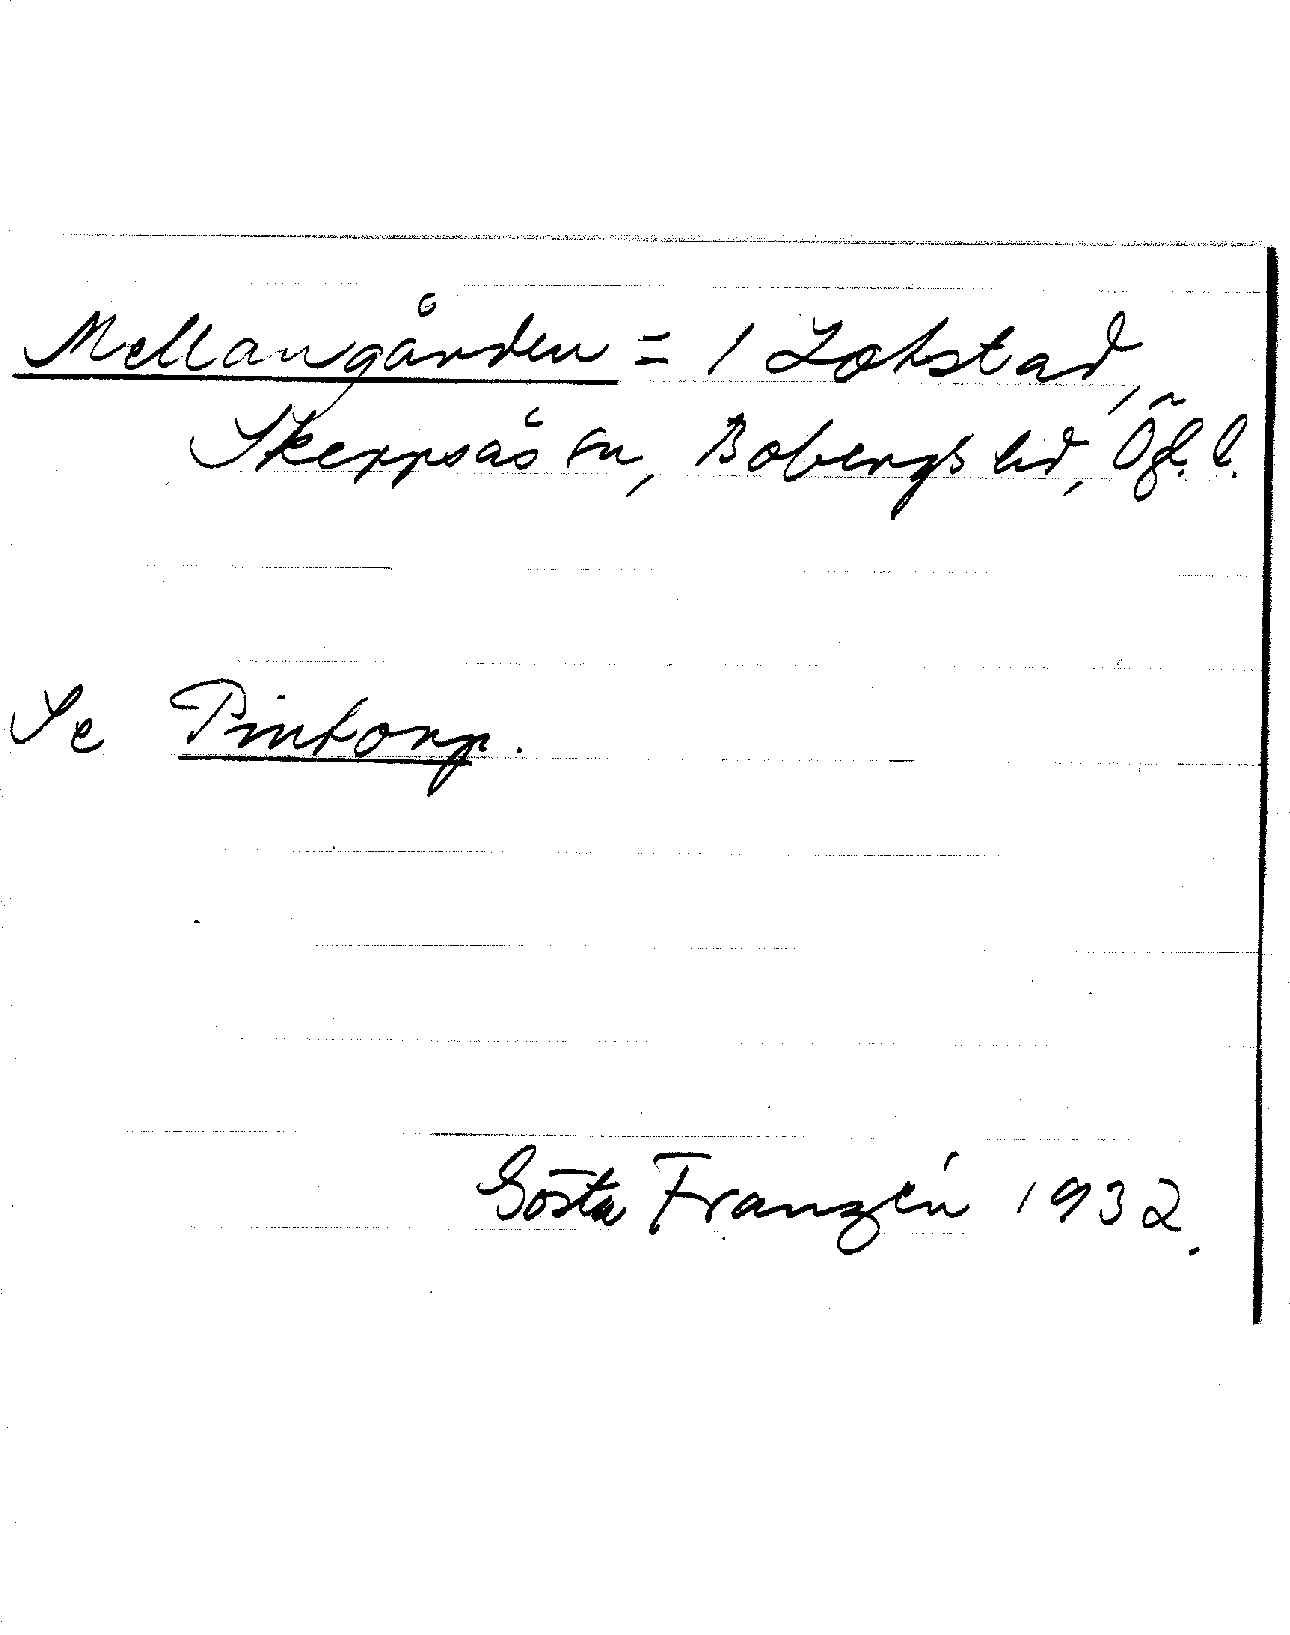 Mellangården = 1 Lotstad,
Skeppsås sn, Bobergs hd, Ögl. l.
Se Pintorp.
Gösta Franzén 1932.